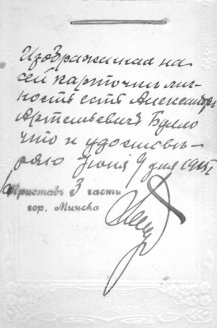 Изображенная на
сей карточкѣ лич-
ность есть Александръ
Артемьевичъ Бупло
что и удостовѣ-
ряю Iюня 9 дня 1915 г.
Приставъ 3 части
гор. Минска